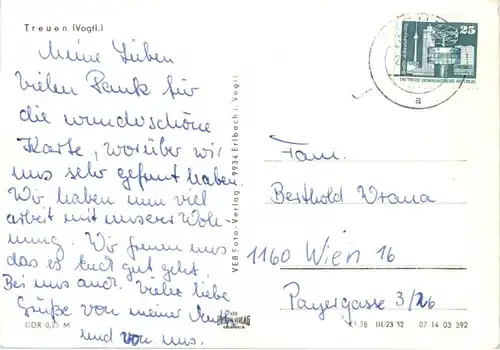 Treuen (Vogtl.)
Meine Lieben
Vielen Dank für
die wunderschöne
Karte, worüber wir
uns sehr gefreut haben
Wir haben nun viel
arbeit mit unserer Woh-
nung. Wir freuen uns
das es Euch gut geht.
Bei uns auch. Viele liebe
Grüße von meiner
und von uns.
DDR 0,25 M
VEB Foto-Verlag · 9934 Erlbach i. Vogtl.
25
DEUTSCHE DEMOKRATISCHE REPUBLIK
a
Fam.
Berthold Wrana
1160 Wien 16
Payergasse 3/26
III/23 12 07 14 03 392